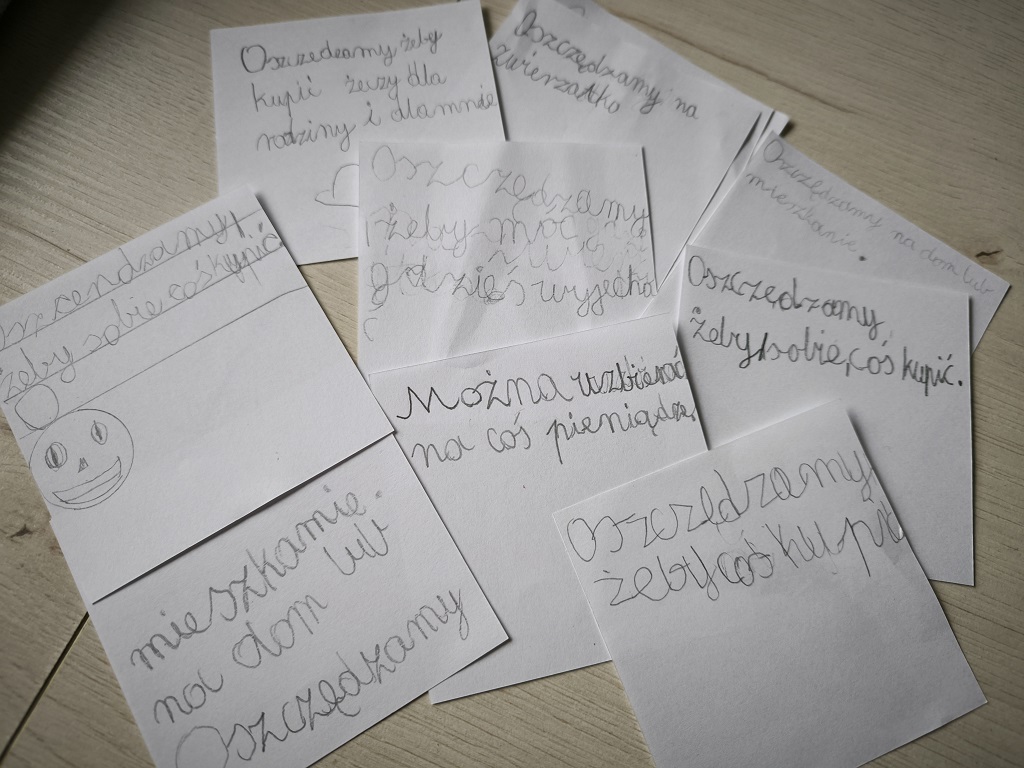 Oszczedzamy żeby
kupić żeczy dla
rodziny i dla mnie
Oszczędzamy na
zwierzątko
Oszczędzamy
żeby móc
gdzieś wyjecha
ć
Oszczędzamy na dom lub
mieszkanie.
Oszcendzamy
żeby sobie coś kupić
Oszczędzamy,
żeby sobie, coś kupić.
Można uzbierać
na coś pieniądze,
mieszkanie.
na dom lub
Oszczędzamy
Oszczędzamy
żeby coś kupić